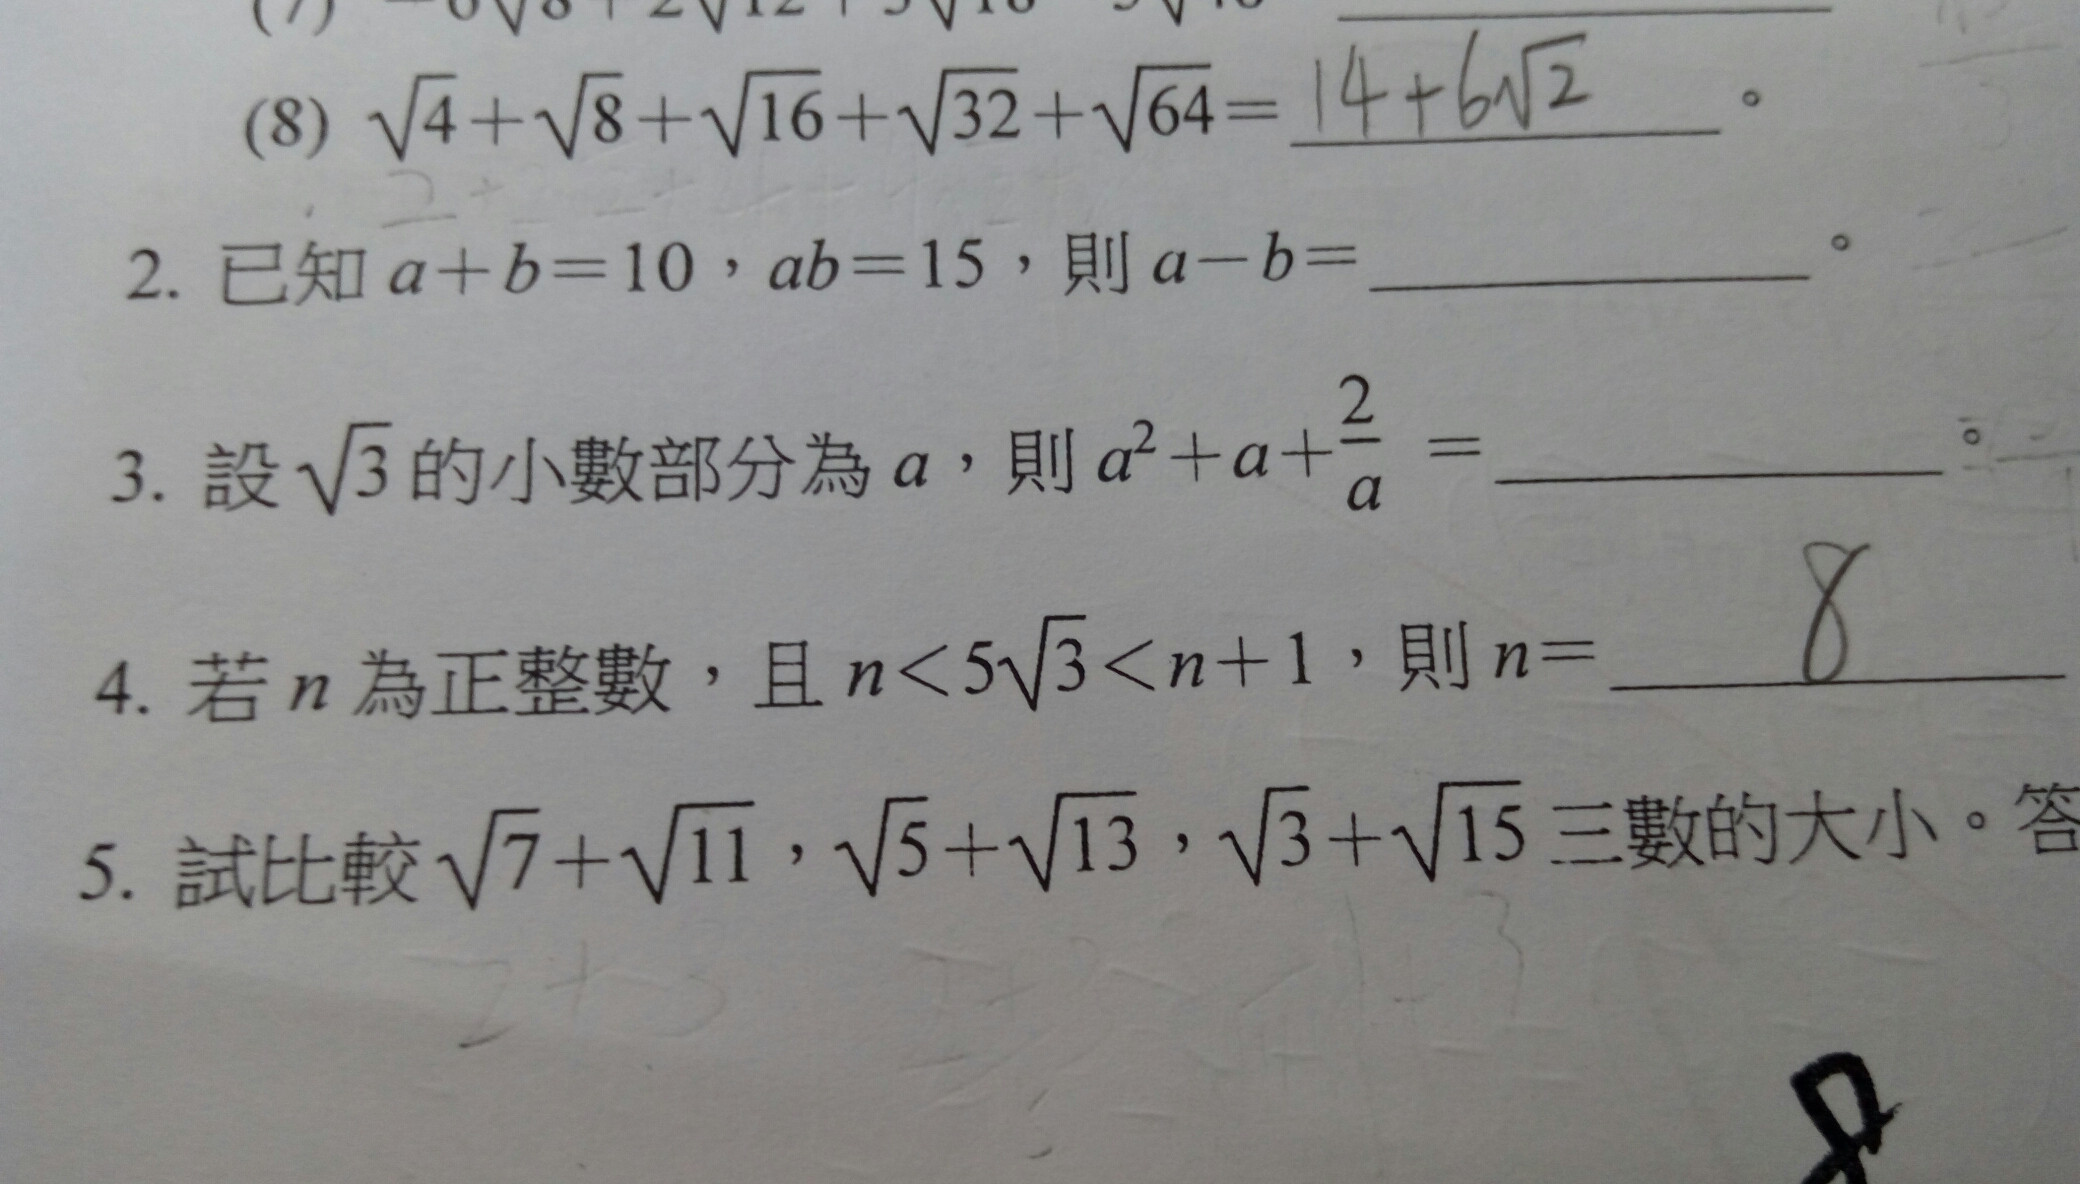 (8) √4+√8+√16+√32+√64= 14+6√2 。
2. 已知 a+b=10，ab=15，則 a－b=＿＿＿＿。
3. 設 √3 的小數部分為 a，則 a²+a+2/a =＿＿＿＿。
4. 若 n 為正整數，且 n<5√3<n+1，則 n= 8
5. 試比較 √7+√11，√5+√13，√3+√15 三數的大小。答
8